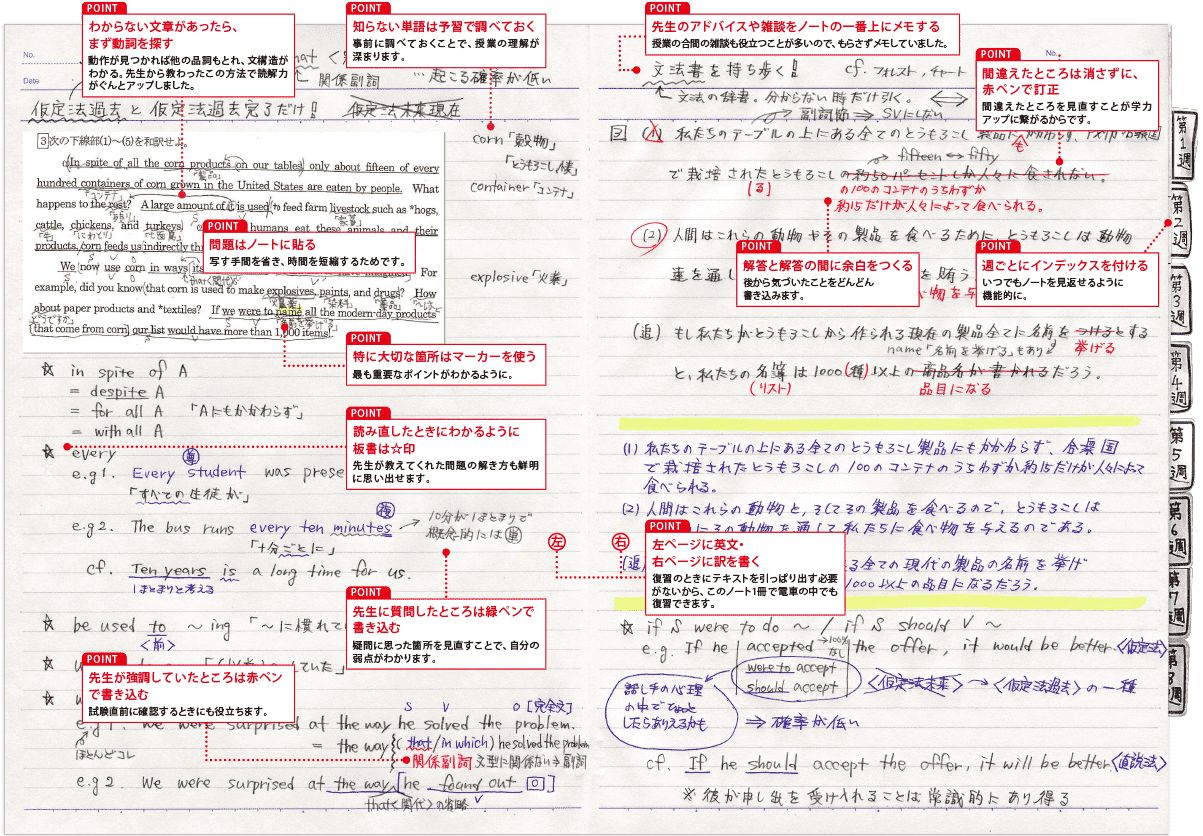 POINT
わからない文章があったら、
まず動詞を探す
動作が見つかれば他の品詞もとれ、文構造が
わかる。先生から教わったこの方法で読解力
ががんとアップしました。
POINT
知らない単語は予習で調べておく
事前に調べておくことで、授業の理解が
深まります。
No.
Date
関係副詞 …起こる確率が低い
仮定法過去と仮定法過去完了だけ! 仮定法未来現在
3 次の下線部(1)～(5)を和訳せよ。
In spite of all the corn products on our tables, only about fifteen of every
「製品」
hundred containers of corn grown in the United States are eaten by people. What
「コンテナ」
happens to the rest? A large amount of it is used to feed farm livestock such as *hogs,
「残り」
「家畜」
cattle, chickens, and turkeys. humans eat these animals and their
「牛」 「にわとり」 「七面鳥」
products, corn feeds us indirectly
We now use corn in ways For
that(関代)
example, did you know (that corn is used to make explosives, paints, and drugs? How
「火薬」 「染料」 「薬品」
about paper products and *textiles? If we were to name all the modern-day products
どうですか 「名前を挙げる」
(that come from corn) our list would have more than 1,000 items!
corn 「穀物」
「とうもろこし(後)」
container 「コンテナ」
explosive 「火薬」
POINT
問題はノートに貼る
写す手間を省き、時間を短縮するためです。
POINT
特に大切な箇所はマーカーを使う
最も重要なポイントがわかるように。
☆ in spite of A
= despite A
= for all A 「Aにもかかわらず」
= with all A
POINT
読み直したときにわかるように
板書は☆印
先生が教えてくれた問題の解き方も鮮明
に思い出せます。
☆ every
単
e.g1. Every student was prese
「すべての生徒が」
複
e.g2. The bus runs every ten minutes
「十分ごとに」
10分が1まとまりで
概念的には単
cf. Ten years is a long time for us.
1まとまりと考える
POINT
先生に質問したところは緑ペンで
書き込む
疑問に思った箇所を見直すことで、自分の
弱点がわかります。
☆ be used to ～ing 「～に慣れて
<前>
POINT
先生が強調していたところは赤ペン
で書き込む
試験直前に確認するときにも役立ちます。
S V O [完全文]
e.g1. We were surprised at the way he solved the problem.
ほとんどコレ
= the way (that/in which) he solved the problem
関係副詞 文型に関係ない⇒副詞
e.g2. We were surprised at the way [he found out O]
that<関代>の省略 V
POINT
先生のアドバイスや雑談をノートの一番上にメモする
授業の合間の雑談も役立つことが多いので、もらさずメモしていました。
No.
文法書を持ち歩く! cf. フォレスト, チャート
文法の辞書。分からない時だけ引く。
副詞節⇒SVにしない
POINT
間違えたところは消さずに、
赤ペンで訂正
間違えたところを見直すことが学力
アップに繋がるからです。
図 (1) 私たちのテーブルの上にある全てのとうもろこし製品にかかわらず、
も
fifteen ↔ fifty
で栽培されたとうもろこしの約50パーセントしか人々に食されない。
(る)
の100のコンテナのうちわずか
約15だけが人々によって食べられる。
(2) 人間はこれらの動物やその製品を食べるために、とうもろこしは動物
達を通し を賄う
POINT
解答と解答の間に余白をつくる
後から気づいたことをどんどん
書き込みます。
POINT
週ごとにインデックスを付ける
いつでもノートを見返せるように
機能的に。
(追) もし私たちがとうもろこしから作られる現在の製品全てに名前をつけるとする
name「名前を挙げる」もあり
挙げる
と、私たちの名簿は1000(種)以上の商品名が書かれるだろう。
(リスト) 品目になる
(1) 私たちのテーブルの上にある全てのとうもろこし製品にもかかわらず、合衆国
で栽培されたとうもろこしの100のコンテナのうちわずか約15だけが人々によって
食べられる。
(2) 人間はこれらの動物と、そしてその製品を食べるので、とうもろこしは
の動物を通して私たちに食べ物を与えるのである。
左
右
POINT
左ページに英文・
右ページに訳を書く
復習のときにテキストを引っぱり出す必要
がないから、このノート1冊で電車の中でも
復習できます。
(追) る全ての現代の製品の名前を挙げ
1000以上の品目になるだろう。
☆ if S were to do ～ / if S should V ～
e.g. If he accepted the offer, it would be better <仮定法>
→100%なし
were to accept
should accept
<仮定法未来> → <仮定法過去>の一種
話し手の心理
の中でひょっと
したらありえるかも
⇒ 確率が低い
cf. If he should accept the offer, it will be better <直説法>
※ 彼が申し出を受け入れることは常識的にあり得る
第1週
第2週
第3週
第4週
第5週
第6週
第7週
第8週